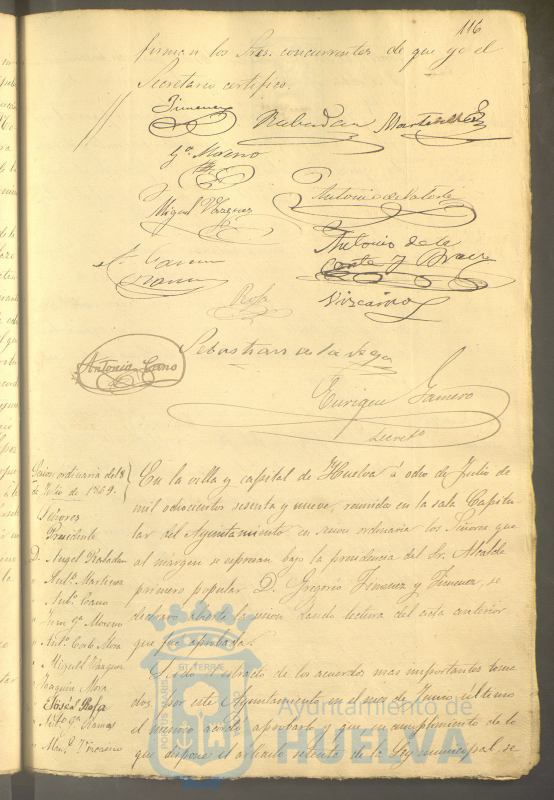 116
firman los Sres. concurrentes de que yo el
Secretario certifico.
Jimenez
Rabadan
Martinez
Gª Moreno
Miguel Vazquez
Antonio de
Antonio de la
Corte y
Rosa
Vizcaino
Sebastian de la Vega
Antonio Cano
Enrique
Secreto
Sesion ordinaria del 8
de Julio de 1869.
Señores
Presidente
D. Angel Rabadan
" Antº. Martinez
" Antº. Cano
" Juan Gª Moreno
" Antº. Corte Mora
" Miguel Vazquez
" Joaquin Mora
" José Mª Rosa
" Antº Gª Ramos
" Man.l Vizcaino
En la villa y capital de Huelva á ocho de Julio de
mil ochocientos sesenta y nueve, reunida en la sala Capitu-
lar del Ayuntamiento en sesion ordinaria los Señores que
al margen se espresan bajo la presidencia del Sr. Alcalde
primero popular D. Gregorio Jimenez y Jimenez, se
declaró abierta la sesion dando lectura del acta anterior
que fue aprobada.
Leido el estrato de los acuerdos mas importantes toma-
dos por este Ayuntamiento en el mes de Junio último
el mismo acordó aprobarlo y que en cumplimiento de lo
que dispone el articulo setenta de la Ley municipal, se
Ayuntamiento de
HUELVA